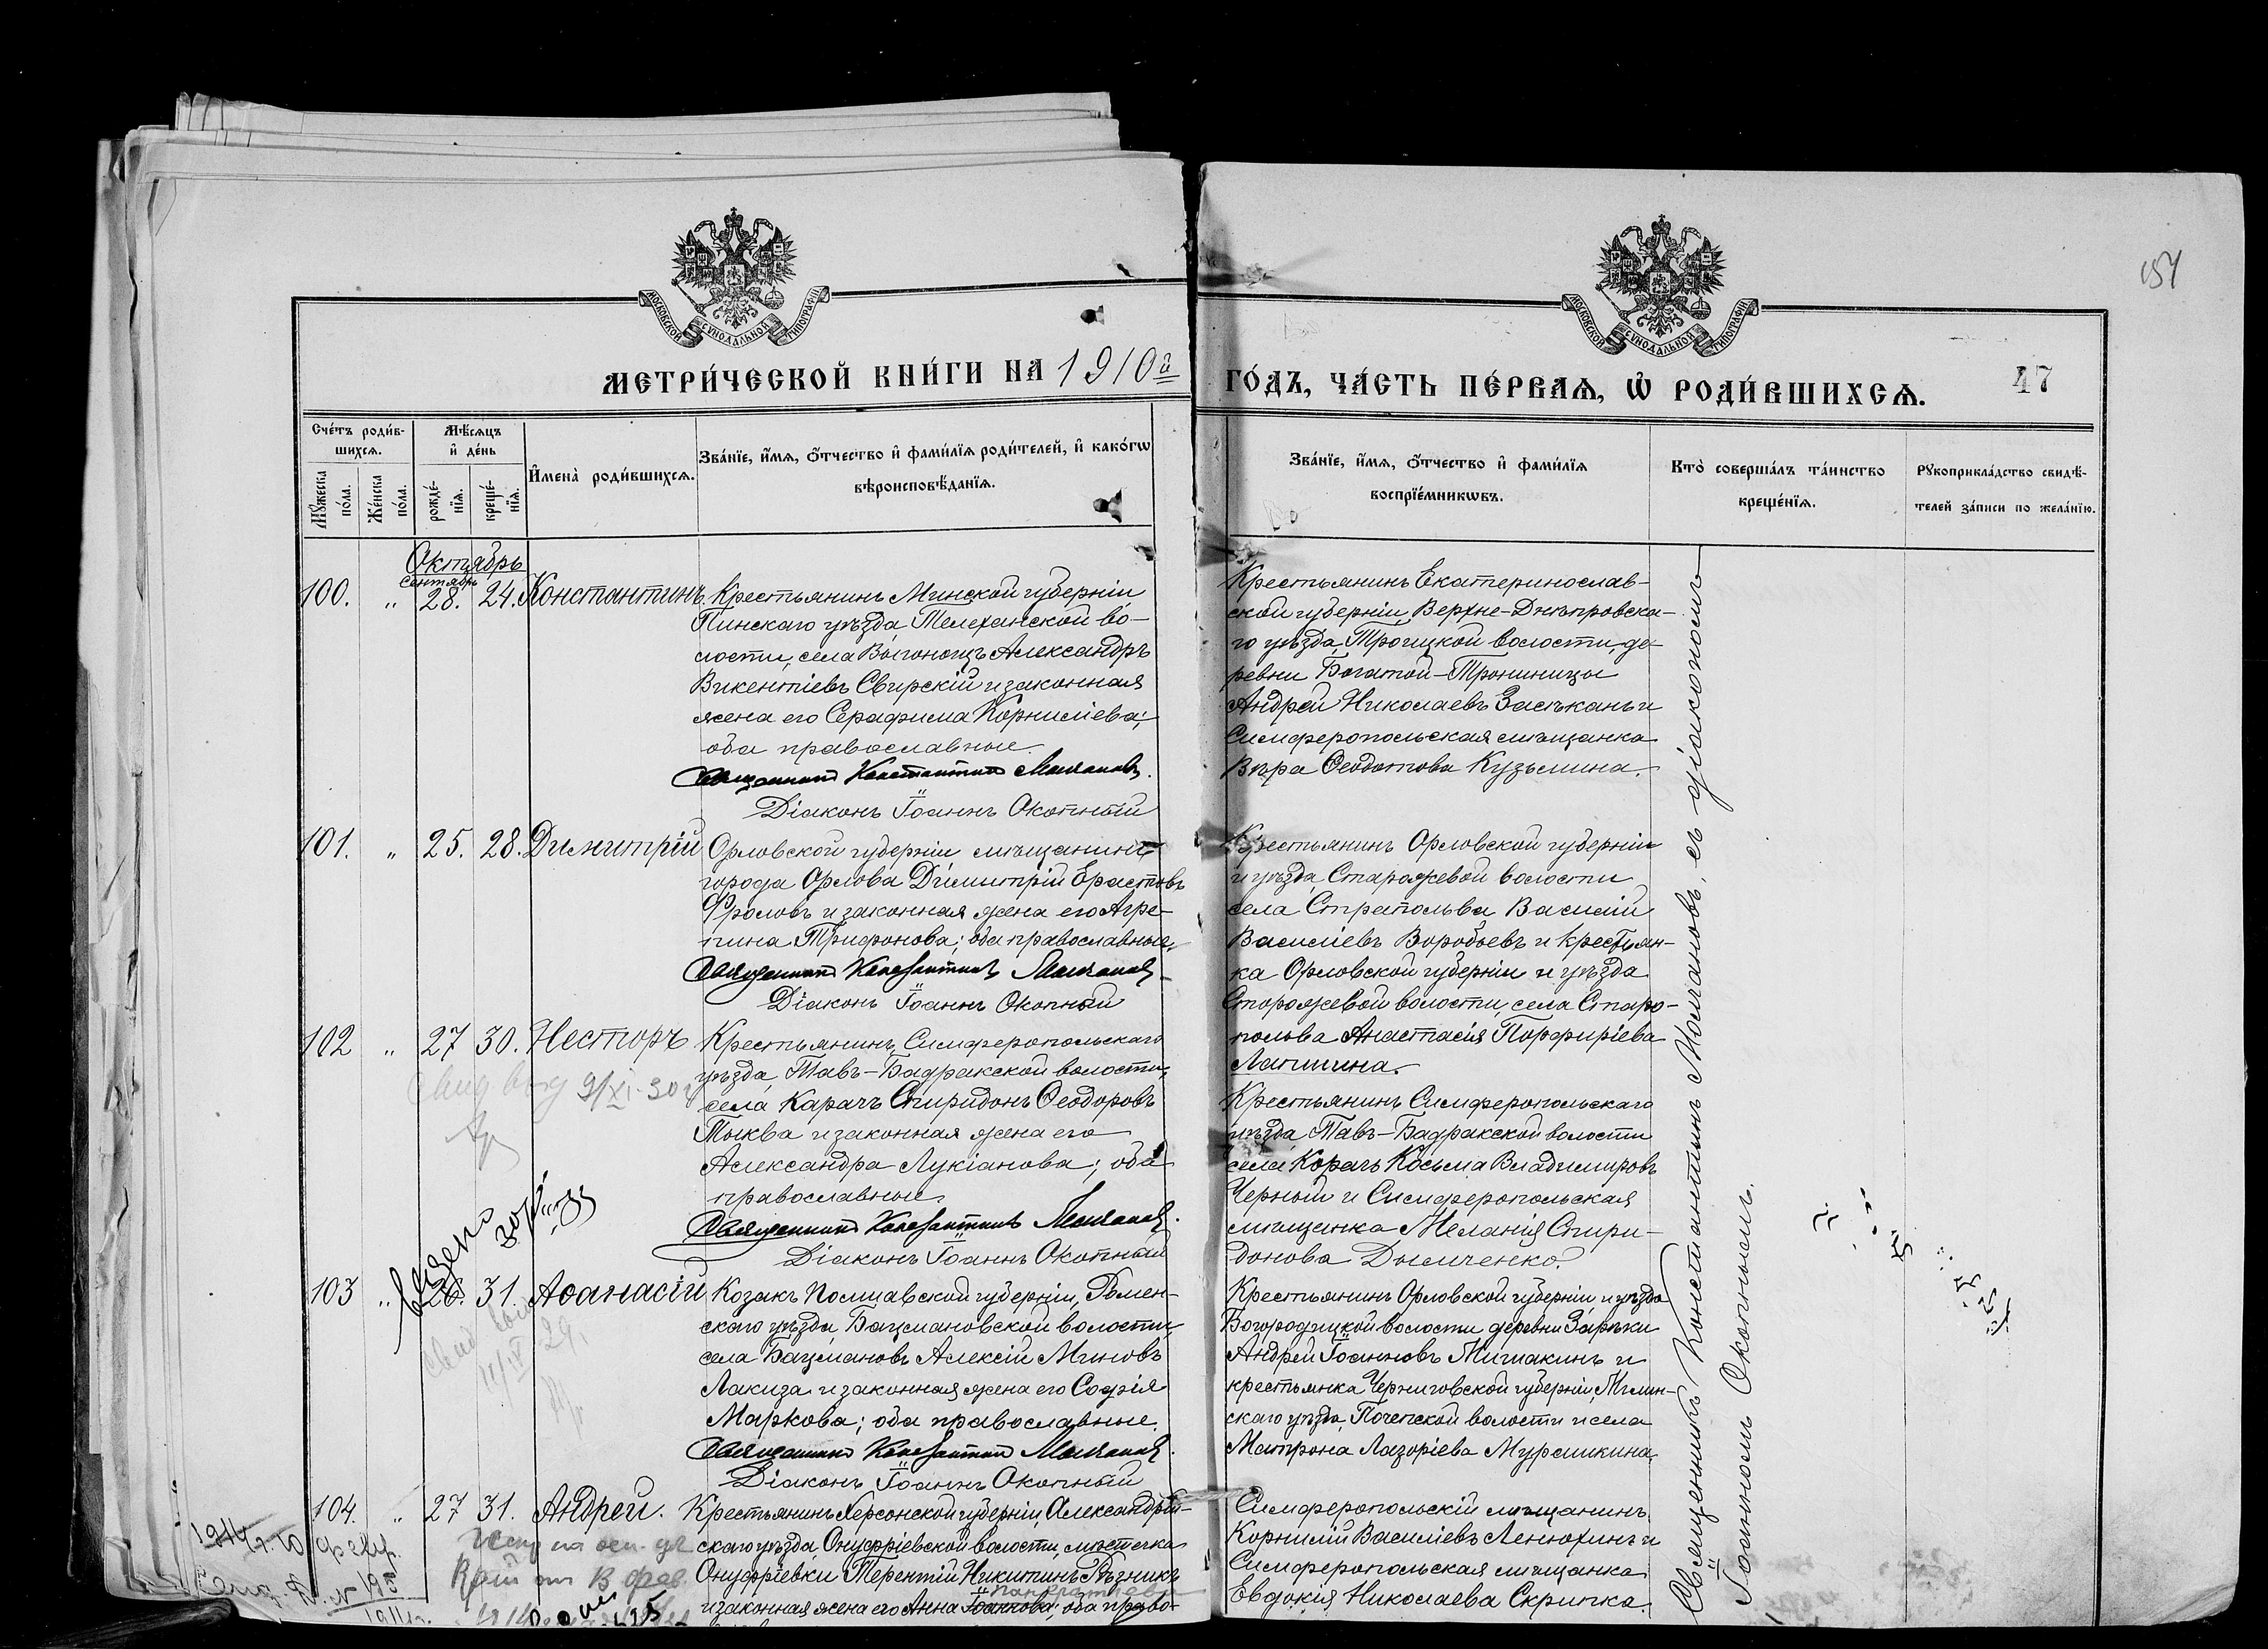 154
МОСКОВСКОЙ СУНОДАЛЬНОЙ ТИПОГРАФІИ
МОСКОВСКОЙ СУНОДАЛЬНОЙ ТИПОГРАФІИ
МЕТРИ́ЧЕСКОЙ КНИ́ГИ НА 1910й
ГО́ДЪ, ЧА́СТЬ ПЕ́РВАѦ, Ѡ҆ РОДИ́ВШИХСѦ.
47
Сче́тъ роди́в-
шихсѧ.
Мꙋ́жеска по́ла.
Же́нска по́ла.
Мѣ́сѧцъ
и҆ де́нь
рожде́-
нїѧ.
креще́-
нїѧ.
И҆мена̀ роди́вшихсѧ.
Зва́нїе, и҆́мѧ, ѻ҆́тчество и҆ фами́лїѧ роди́телей, и҆ како́гѡ
вѣроисповѣ́данїѧ.
Зва́нїе, и҆́мѧ, ѻ҆́тчество и҆ фами́лїѧ
воспрїе́мникѡвъ.
Кто̀ соверша́лъ та́инство
креще́нїѧ.
Рꙋкоприкла́дство свидѣ́-
телей за́писи по жела́нїю.
Октябрь
сентябрь
100. " 28. 24. Константинъ.
Крестьянинъ Минской губерніи
Пинскаго уѣзда, Телеханской во-
лости, села Выгонощъ Александръ
Викентіевъ Свирскій и законная
жена его Серафима Корниліева;
оба православные.
Священникъ Константинъ Молчановъ.
Діаконъ Іоаннъ Окопный
Крестьянинъ Екатеринослав-
ской губерніи, Верхне-Днѣпровска-
го уѣзда, Троицкой волости, де-
ревни Богатой-
Андрей Николаевъ и
Симферопольская мѣщанка
Вѣра Ѳеодотова Кузьмина.
101. " 25. 28. Димитрій
Орловской губерніи мѣщанинъ
города Орлова Димитрій Ерастовъ
Фроловъ и законная жена его Агре-
пина Трифонова; оба православные.
Священникъ Константинъ Молчановъ
Діаконъ Іоаннъ Окопный
Крестьянинъ Орловской губерніи
и уѣзда, Старожевой волости
села Василій
Василіевъ Воробьевъ и крестьян-
ка Орловской губерніи и уѣзда
Сторожевой волости, села Старо-
польва Анастасія Порфиріева
Лапшина.
102 " 27 30. Несторъ
9/XI-30г
Крестьянинъ Симферопольскаго
уѣзда, Тавъ-Бадракской волости,
села Карачъ Спиридонъ Ѳеодоровъ
Тыква и законная жена его
Александра Лукіанова; оба
православные.
Священникъ Константинъ Молчановъ.
Діаконъ Іоаннъ Окопный
Крестьянинъ Симферопольскаго
уѣзда, Тавъ-Бадракской волости
села Корачъ Косьма Владимировъ
Черный и Симферопольская
мѣщанка Меланія Спири-
донова Дымченко.
103 " 26. 31. Аѳанасій
11/IV 29.
Козакъ Полтавской губерніи, Ромен-
скаго уѣзда, Бацмановской волости,
села Бацмановъ Алексій Миновъ
Лакиза и законная жена его Софія
Маркова; оба православные.
Священникъ Константинъ Молчановъ.
Діаконъ Іоаннъ Окопный
Крестьянинъ Орловской губерніи и уѣзда
Богородицкой волости деревни Зарѣки
Андрей Іоанновъ Мишакинъ и
крестьянка Черниговской губерніи, Мглин-
скаго уѣзда, Почепской волости и села
Матрона Лазоріева Мурашкина.
104. " 27 31. Андрей.
Крестьянинъ Херсонской губерніи, Александрій-
скаго уѣзда, Онуфріевской волости, мѣстечка
Онуфріевки Терентій Никитинъ Рѣзникъ
Панкратіева
и законная жена его Анна Іоаннова; оба право-
Симферопольскій мѣщанинъ
Корнилій Василіевъ Ленюхинъ и
Симферопольская мѣщанка
Евдокія Николаева Скрипка.
Священникъ Константинъ Молчановъ, съ діакономъ
Іоанномъ Окопнымъ.